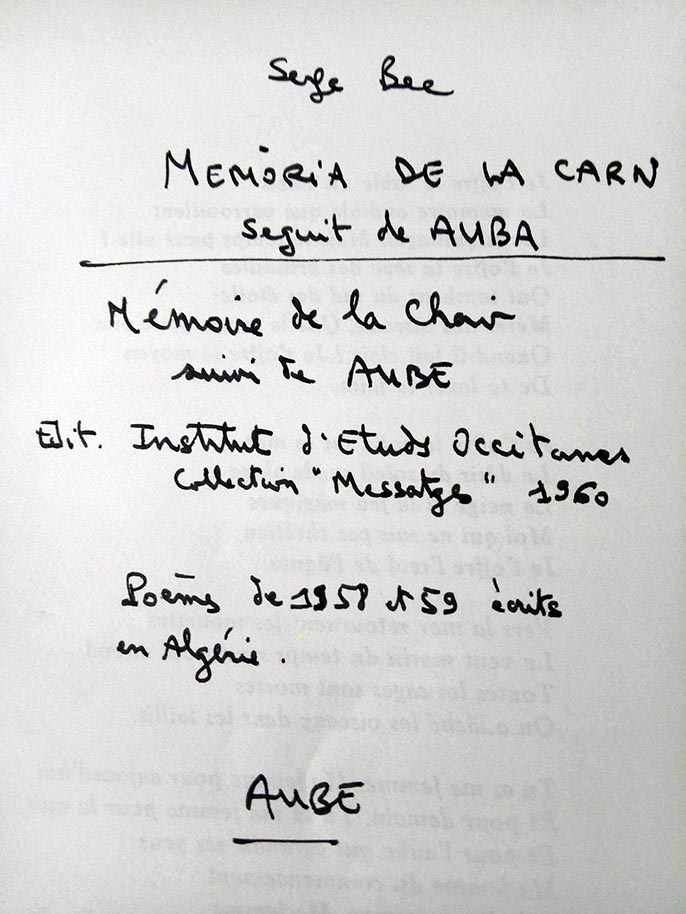 Serge Bec
MEMÒRIA DE LA CARN
seguit de AUBA
Mémoire de la Chair
suivi de AUBE
Edit. Institut d'Etuds Occitanes
Collection "Messatges" 1960
Poèmes de 1958 et 59 écrits
en Algérie.
AUBE